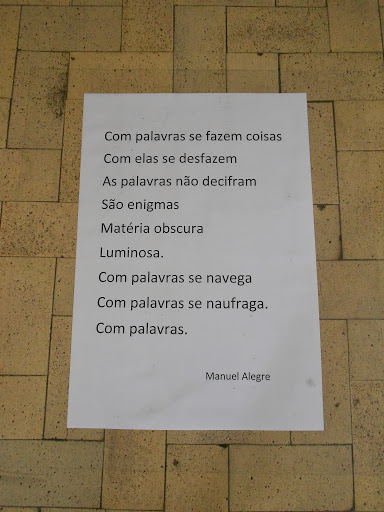 Com palavras se fazem coisas
Com elas se desfazem
As palavras não decifram
São enigmas
Matéria obscura
Luminosa.
Com palavras se navega
Com palavras se naufraga.
Com palavras.
Manuel Alegre